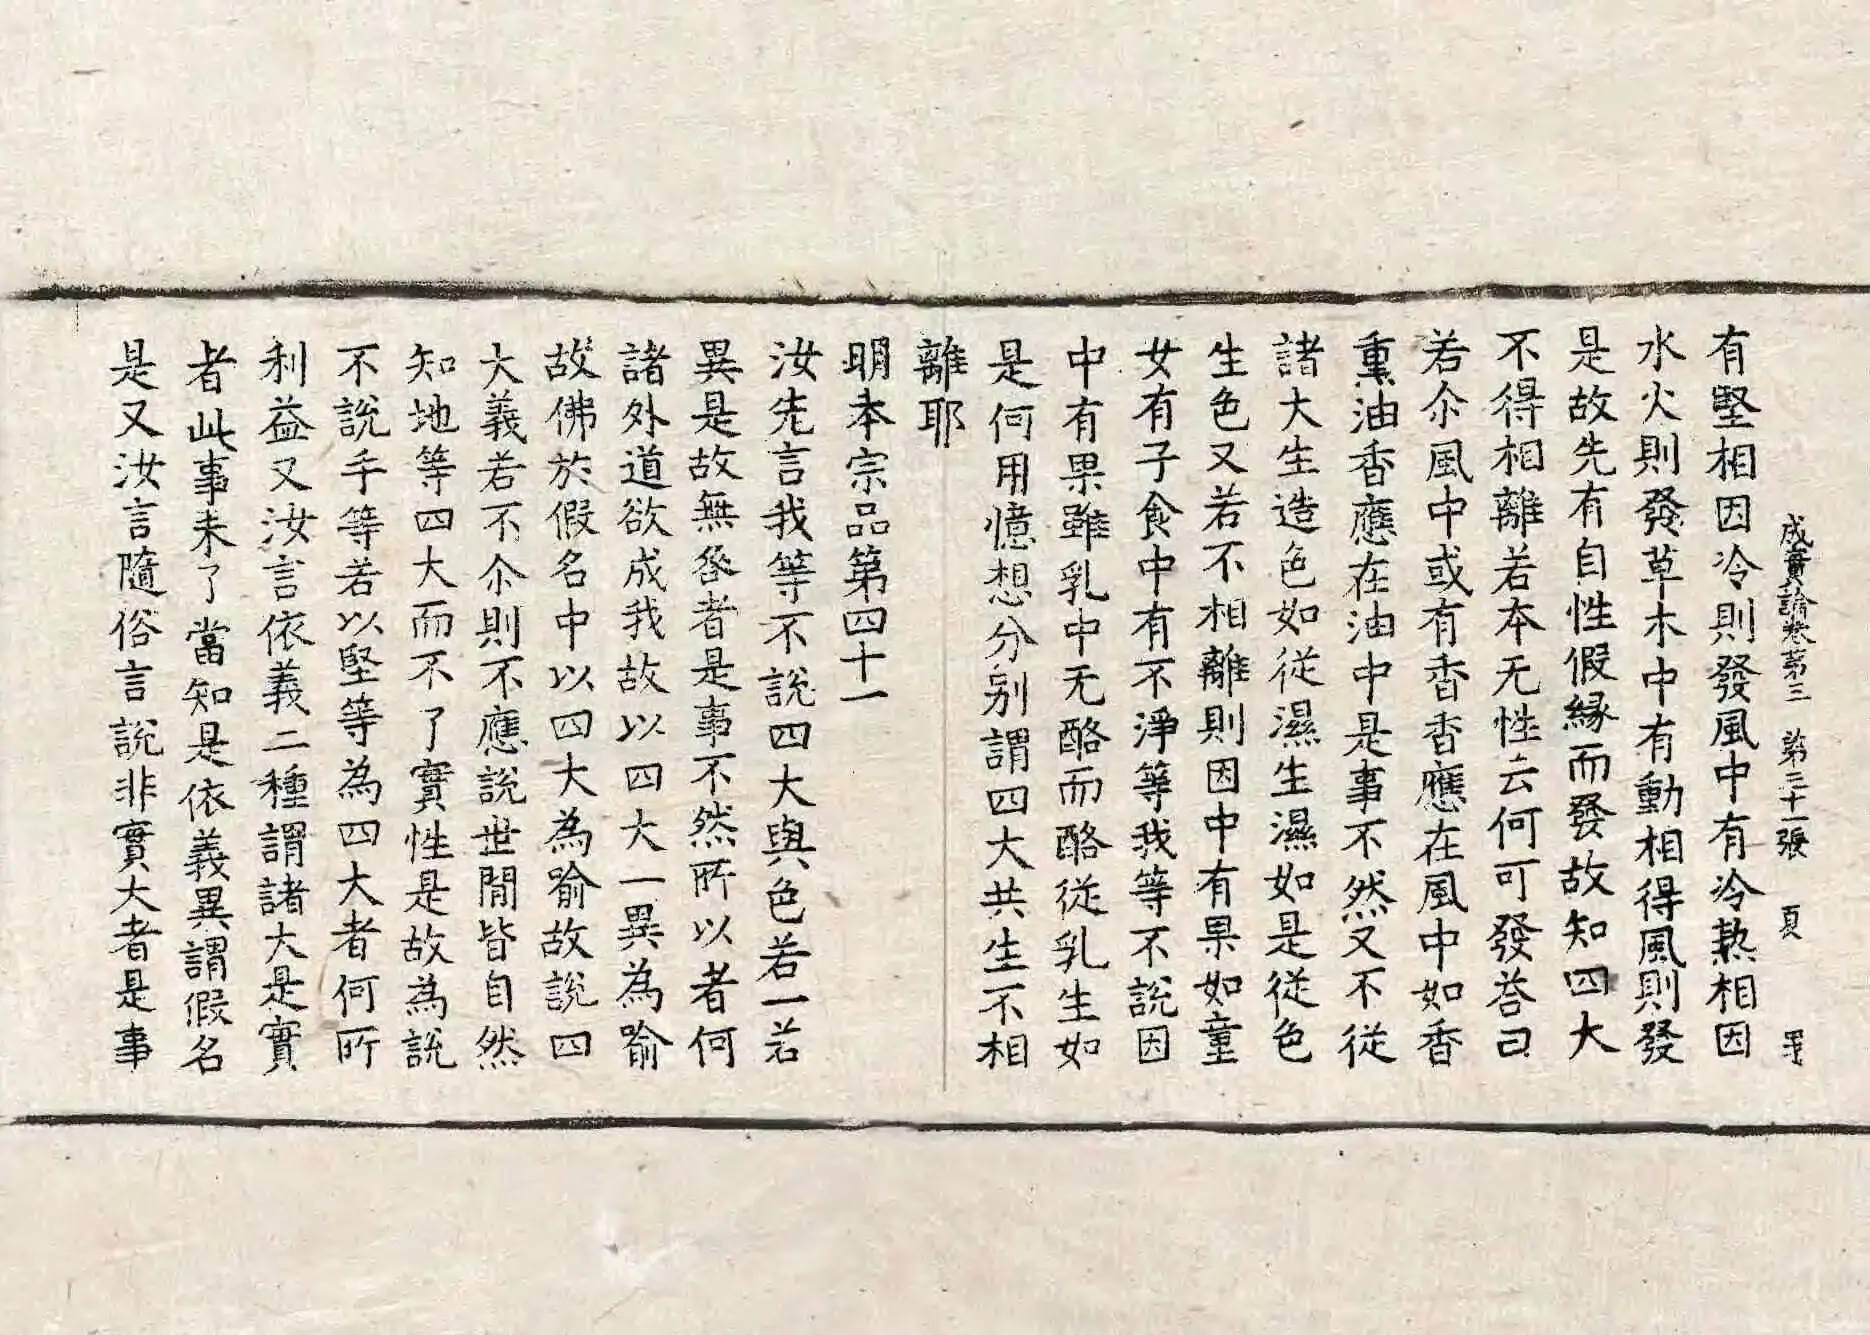 成實論卷第三　第三十一張　夏
有堅相因冷則發風中有冷熱相因
水火則發草木中有動相得風則發
是故先有自性假緣而發故知四大
不得相離若本无性云何可發荅曰
若尒風中或有香香應在風中如香
熏油香應在油中是事不然又不從
諸大生造色如從濕生濕如是從色
生色又若不相離則因中有果如童
女有子食中有不淨等我等不說因
中有果雖乳中无酪而酪從乳生如
是何用憶想分别謂四大共生不相
離耶
明本宗品第四十一
汝先言我等不說四大與色若一若
異是故無咎者是事不然所以者何
諸外道欲成我故以四大一異為喻
故佛於假名中以四大為喻故說四
大義若不尒則不應說世閒皆自然
知地等四大而不了實性是故為說
不說手等若以堅等為四大者何所
利益又汝言依義二種謂諸大是實
者此事未了當知是依義異謂假名
是又汝言隨俗言說非實大者是事